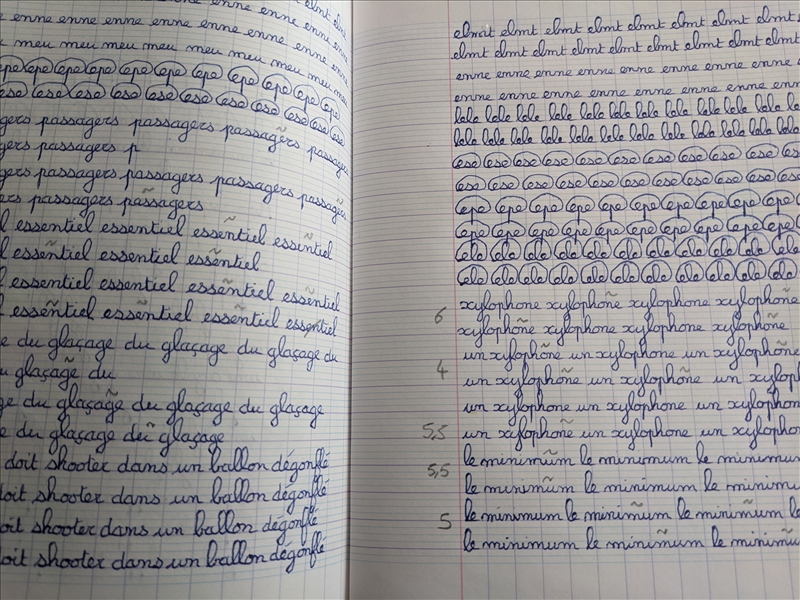 enne enne enne enne
enne enne enne enne enne enne
meu meu meu meu meu meu meu
epe epe epe epe epe epe epe
ese ese ese ese ese ese ese ese
passagers passagers passagers
passagers p
passagers passagers passagers passagers
passagers passagers
essentiel essentiel essentiel essentiel
essentiel essentiel essentiel
essentiel essentiel essentiel essentiel
essentiel essentiel essentiel essentiel
du glaçage du glaçage du glaçage du
glaçage du
du glaçage du glaçage du glaçage
du glaçage du glaçage
doit shooter dans un ballon dégonflé
doit shooter dans un ballon dégonflé
doit shooter dans un ballon dégonflé
doit shooter dans un ballon dégonflé
elmt elmt elmt elmt elmt elmt elmt elmt
elmt elmt elmt elmt elmt elmt elmt elmt
enne enne enne enne enne enne enne enne
enne enne enne enne enne enne enne enne
lele lele lele lele lele lele lele lele lele lele
lele lele lele lele lele lele lele lele lele lele
ese ese ese ese ese ese ese ese ese ese
ese ese ese ese ese ese ese ese ese ese
epe epe epe epe epe epe epe epe epe
epe epe epe epe epe epe epe epe epe
ele ele ele ele ele ele ele ele ele ele
ele ele ele ele ele ele ele ele ele ele
6 xylophone xylophone xylophone xylophone
xylophone xylophone xylophone xylophone
un xylophone un xylophone un xylophone
4 un xylophone un xylophone un
un xylophone un xylophone un
5,5 un xylophone un xylophone un
le minimum le minimum le minimum
5,5 le minimum le minimum le minimum
5 le minimum le minimum le minimum le
le minimum le minimum le minimum